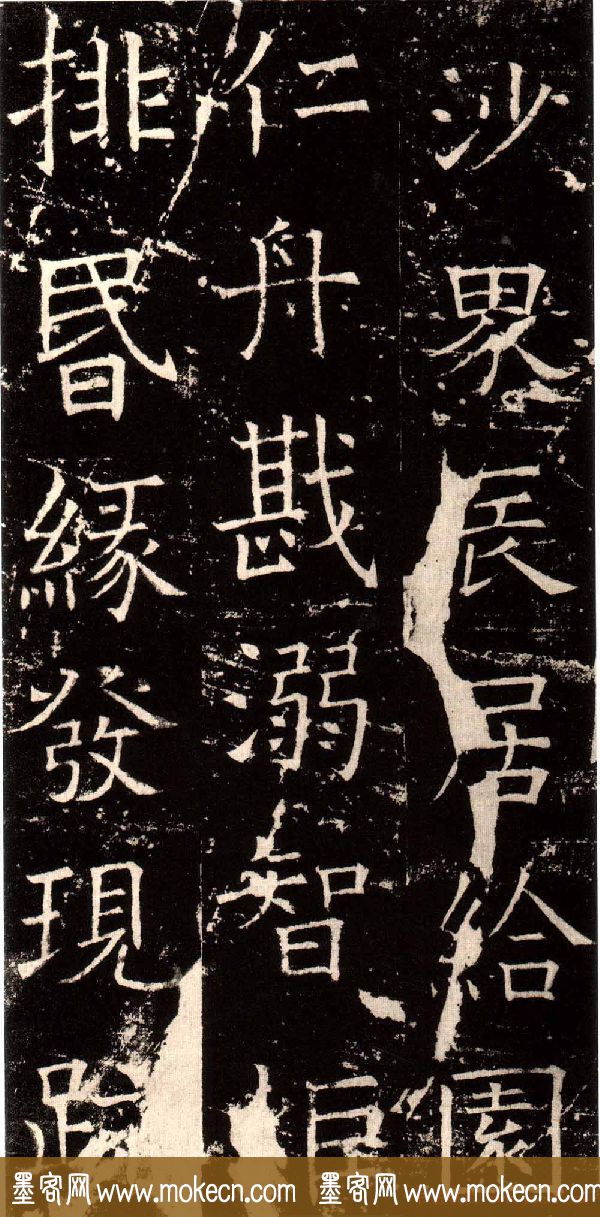 沙界長居給園
仁舟戡溺智炬
排昬緣發現
墨客网 www.mokecn.com 墨客网 www.mokecn.com